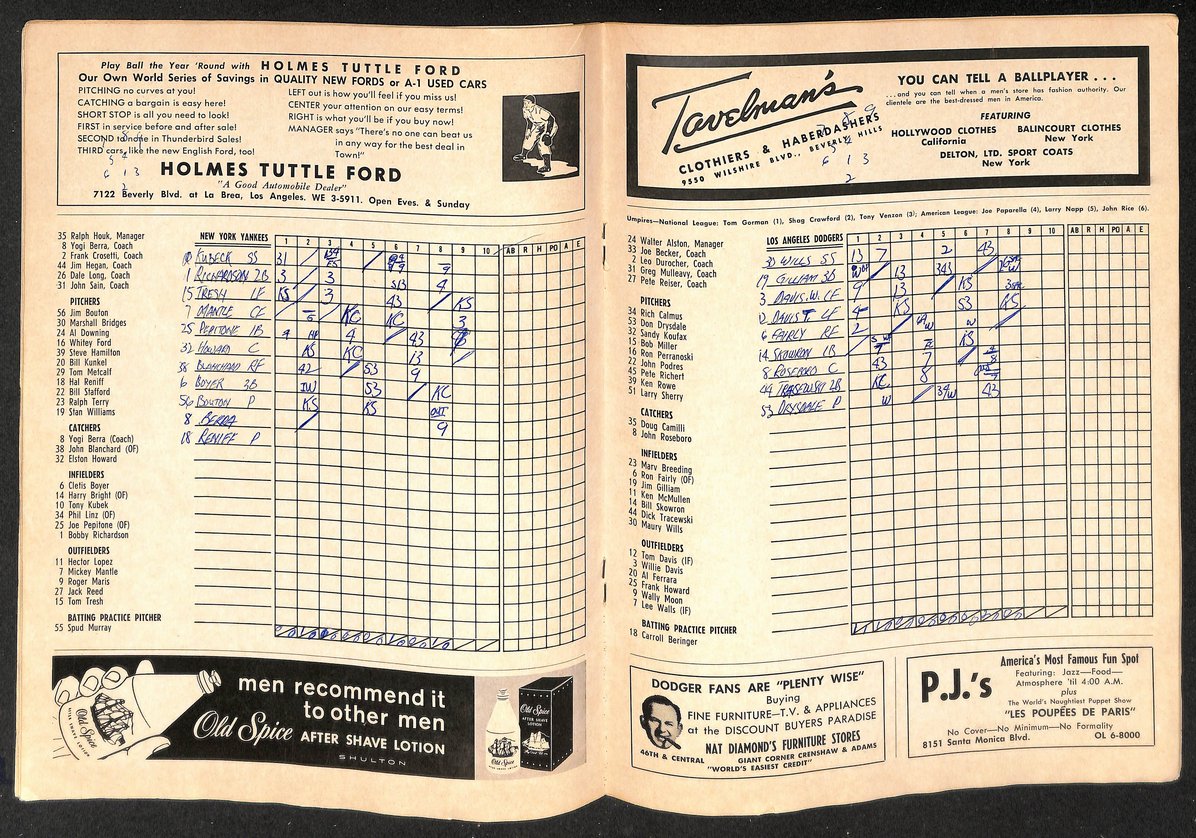 Play Ball the Year 'Round with HOLMES TUTTLE FORD
Our Own World Series of Savings in QUALITY NEW FORDS or A-1 USED CARS
PITCHING no curves at you!
CATCHING a bargain is easy here!
SHORT STOP is all you need to look!
FIRST in service before and after sale!
SECOND to none in Thunderbird Sales!
THIRD cars, like the new English Ford, too!
LEFT out is how you'll feel if you miss us!
CENTER your attention on our easy terms!
RIGHT is what you'll be if you buy now!
MANAGER says "There's no one can beat us
in any way for the best deal in
Town!"
HOLMES TUTTLE FORD
"A Good Automobile Dealer"
7122 Beverly Blvd. at La Brea, Los Angeles. WE 3-5911. Open Eves. & Sunday
35 Ralph Houk, Manager
8 Yogi Berra, Coach
2 Frank Crosetti, Coach
44 Jim Hegan, Coach
26 Dale Long, Coach
31 John Sain, Coach
PITCHERS
56 Jim Bouton
30 Marshall Bridges
24 Al Downing
16 Whitey Ford
39 Steve Hamilton
20 Bill Kunkel
29 Tom Metcalf
18 Hal Reniff
22 Bill Stafford
23 Ralph Terry
19 Stan Williams
CATCHERS
8 Yogi Berra (Coach)
38 John Blanchard (OF)
32 Elston Howard
INFIELDERS
6 Cletis Boyer
14 Harry Bright (OF)
10 Tony Kubek
34 Phil Linz (OF)
25 Joe Pepitone (OF)
1 Bobby Richardson
OUTFIELDERS
11 Hector Lopez
7 Mickey Mantle
9 Roger Maris
27 Jack Reed
15 Tom Tresh
BATTING PRACTICE PITCHER
55 Spud Murray
NEW YORK YANKEES 1 2 3 4 5 6 7 8 9 10 AB R H PO A E
10 KUBECK SS 31
1 RICHARDSON 2B 3 3 4
15 TRESH LF KS 3 43 KS
7 MANTLE CF KC KC 3
25 PEPITONE 1B 4 43
32 HOWARD C KS KC 13
38 BLANCHARD RF 42 53 9
6 BOYER 3B IW 53 KC
56 BOUTON P KS KS OUT
8 BERRA 9
18 RENIFF P
men recommend it
to other men
Old Spice AFTER SHAVE LOTION
SHULTON
Tavelman's
CLOTHIERS & HABERDASHERS
9550 WILSHIRE BLVD., BEVERLY HILLS
YOU CAN TELL A BALLPLAYER . . .
. . . and you can tell when a men's store has fashion authority. Our
clientele are the best-dressed men in America.
FEATURING
HOLLYWOOD CLOTHES
California
BALINCOURT CLOTHES
New York
DELTON, LTD. SPORT COATS
New York
Umpires—National League: Tom Gorman (1), Shag Crawford (2), Tony Venzon (3); American League: Joe Paparella (4), Larry Napp (5), John Rice (6).
24 Walter Alston, Manager
33 Joe Becker, Coach
2 Leo Durocher, Coach
31 Greg Mulleavy, Coach
27 Pete Reiser, Coach
PITCHERS
34 Rich Calmus
53 Don Drysdale
32 Sandy Koufax
15 Bob Miller
16 Ron Perranoski
22 John Podres
45 Pete Richert
39 Ken Rowe
51 Larry Sherry
CATCHERS
35 Doug Camilli
8 John Roseboro
INFIELDERS
23 Marv Breeding
6 Ron Fairly (OF)
19 Jim Gilliam
11 Ken McMullen
14 Bill Skowron
44 Dick Tracewski
30 Maury Wills
OUTFIELDERS
12 Tom Davis (IF)
3 Willie Davis
20 Al Ferrara
25 Frank Howard
9 Wally Moon
7 Lee Walls (IF)
BATTING PRACTICE PITCHER
18 Carroll Beringer
LOS ANGELES DODGERS 1 2 3 4 5 6 7 8 9 10 AB R H PO A E
30 WILLS SS 13 7 2 43
19 GILLIAM 3B W 13 343
3 DAVIS.W. CF 9 13 KS
12 DAVIS T. LF KS 53 KS
6 FAIRLY RF 2 W W
14 SKOWRON 1B KS
8 ROSEBORO C 43 7
44 TRACEWSKI 2B KC 8
53 DRYSDALE P W 34 43
DODGER FANS ARE "PLENTY WISE"
Buying
FINE FURNITURE—T.V. & APPLIANCES
at the DISCOUNT BUYERS PARADISE
NAT DIAMOND'S FURNITURE STORES
46TH & CENTRAL GIANT CORNER CRENSHAW & ADAMS
"WORLD'S EASIEST CREDIT"
P.J.'s
America's Most Famous Fun Spot
Featuring: Jazz—Food—
Atmosphere 'til 4:00 A.M.
plus
The World's Naughtiest Puppet Show
"LES POUPÉES DE PARIS"
No Cover—No Minimum—No Formality
8151 Santa Monica Blvd. OL 6-8000